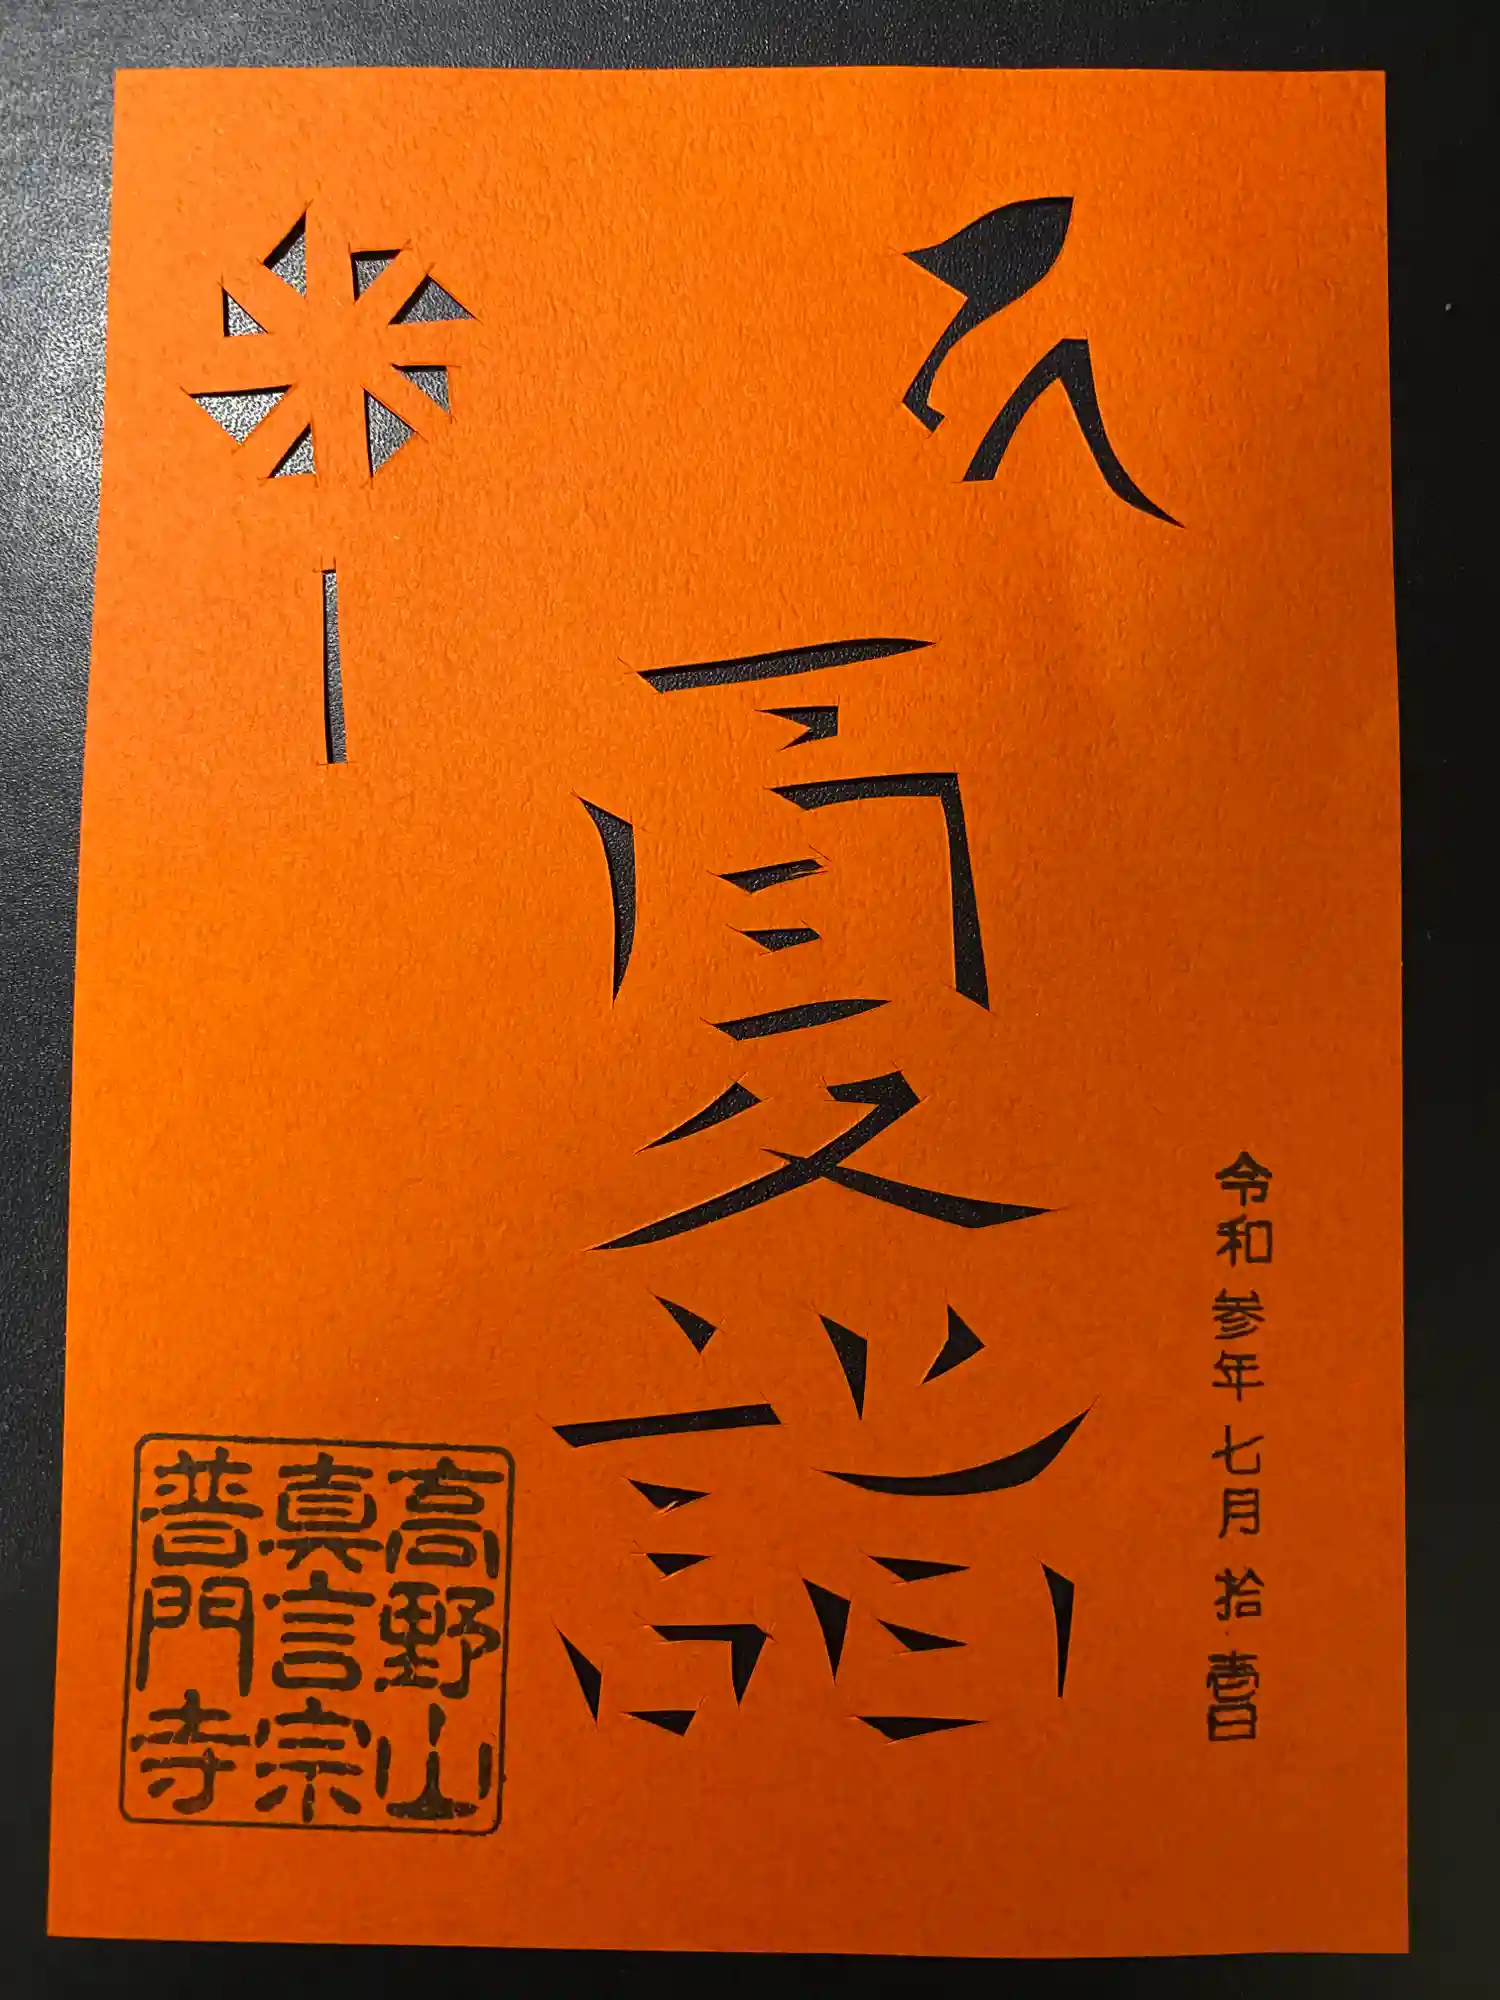 令和参年七月拾壱日
夏詣
高野山
真言宗
普門寺